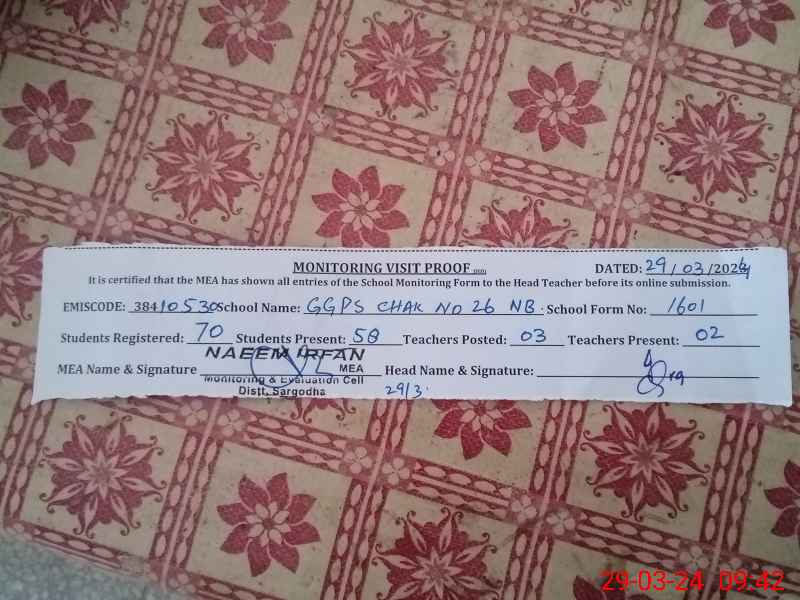 MONITORING VISIT PROOF DATED: 29/03/2024
It is certified that the MEA has shown all entries of the School Monitoring Form to the Head Teacher before its online submission.
EMISCODE: 38410530 School Name: GGPS CHAK NO 26 NB. School Form No: 1601
Students Registered: 70 Students Present: 58 Teachers Posted: 03 Teachers Present: 02
NAEEM IRFAN
MEA Name & Signature MEA Head Name & Signature:
Monitoring & Evaluation Cell
Distt, Sargodha 29/3.
29-03-24 09:42